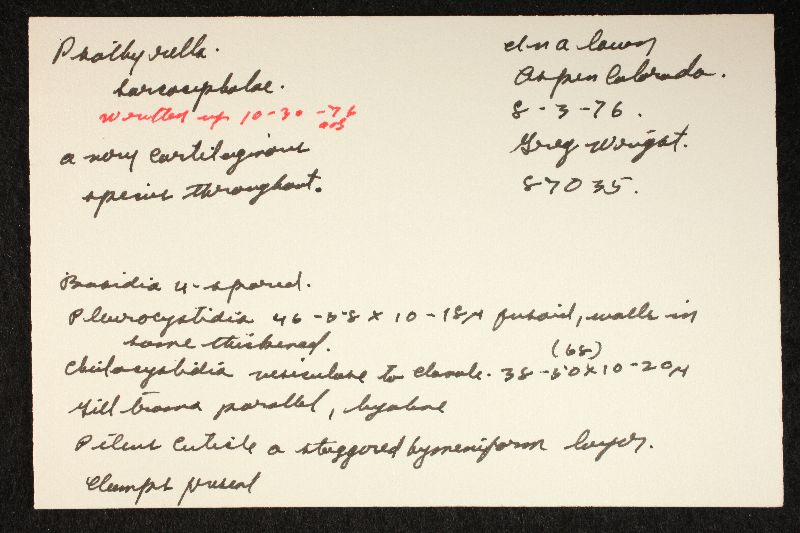 Psathyrella.
sarcocephala.
written up 10-30-76
a very cartilaginous
species throughout.
on a lawn
Aspen Colorado.
8-3-76.
Greg Wright.
87035.
Basidia 4-spored.
Pleurocystidia 46-58 x 10-18µ fusoid, walls in
some thickened.
(68)
Cheilocystidia vesiculose to clavate. 38-50x10-20µ
Gill trama parallel, hyaline
Pileus cuticle a staggered hymeniform layer.
Clamps present